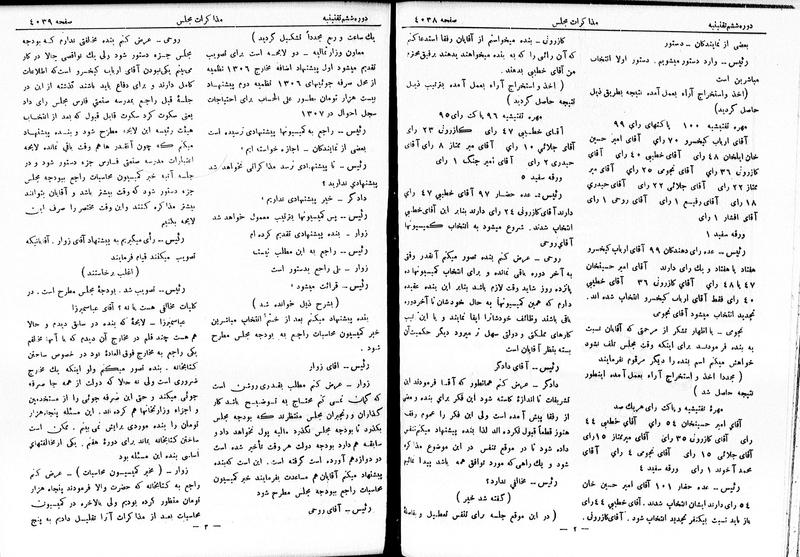 دوره ششم تقنینیه
مذاکرات مجلس
صفحه ۴۰۳۸
بعضی از نمایندگان - دستور
رئیس - وارد دستور میشویم. دستور اولا انتخاب
مباشرین است
(اخذ و استخراج آراء بعمل آمده نتیجه بطریق ذیل
حاصل گردید)
مهره تفتیشیه ۱۰۰ پاکتهای رأی ۹۹
آقای ارباب کیخسرو ۷۰ رای آقای امیر حسین
خان ایلخان ۴۸ رای آقای خطیبی ۴۰ رای آقای
کازرونی ۳۹ رای آقای نجومی ۲۵ رای آقای میر
ممتاز ۲۲ رای آقای جلائی ۲۲ رای آقای حیدری
۱۸ رای آقای رفیع ۱ رای آقای روحی ۱ رای
آقای افشار ۱ رای
ورقه سفید ۱
رئیس - عده رای دهندگان ۹۹ آقای ارباب کیخسرو
هفتاد رای دارند آقای امیر حسینخان
۴۷ یا ۴۸ رای آقای کازرونی ۳۹ آقای خطیبی
۴۰ رای فقط آقای ارباب کیخسرو انتخاب شده اند.
تجدید انتخاب میشود آقای نجومی
نجومی - با اظهار تشکر از مرحمتی که آقایان نسبت
به بنده فرمودند برای اینکه وقت مجلس تلف نشود
خواهش میکنم اسم بنده را دیگر مرقوم نفرمایند
(مجدداً اخذ و استخراج آراء بعمل آمده اینطور
نتیجه حاصل شد)
مهرهٔ تفتیشیه و پاکت رای هریک صد
آقای امیر حسینخان ۵۴ رای آقای خطیبی ۴۴
رای آقای کازرونی ۳۵ رای آقای میرممتاز ۱۵ رای
آقای جلائی ۱۵ رای آقای نجومی ۴ رای آقای
محمد آخوند ۱ رای ورقه سفید ۴
رئیس - عده حضار ۱۰۱ آقای امیر حسین خان
۵۴ رای دارند ایشان انتخاب شدند. آقای خطیبی ۴۴ رای
باز باید نسبت بیکنفر تجدید انتخاب شود. آقای کازرونی.
کازرونی - بنده میخواستم از آقایان رفقا استدعا کنم
که آن رأئی را که به بنده میخواهند بدهند برفیق محترم
من آقای خطیبی بدهند.
(اخذ و استخراج آراء بعمل آمده بترتیب ذیل
نتیجه حاصل گردید)
مهره تفتیشیه ۹۶ پاکت رای ۹۵
آقای خطیبی ۴۷ رای کازرونی ۲۳ رای
آقای جلائی ۱۰ رای آقای میر ممتاز ۸ رای آقای
حیدری ۲ رای آقای امیر جنگ ۱ رای
ورقه سفید ۵
رئیس - عده حضار ۹۷ آقای خطیبی ۴۷ رای
دارند آقای کازرونی ۲۴ رای دارند بنابر این آقای خطیبی
انتخاب شدند. شروع میشود به انتخاب کمیسیونها
آقای روحی
روحی - عرض کنم بنده تصور میکنم آنقدر وقتی
به آخر دوره باقی نمانده و برای انتخاب کمیسیونها ده
پانزده روز شاید وقت لازم باشد بنابر این بنده عقیده
دارم که همین کمیسیونها به حال خودشان تا آخر دوره
باقی باشند وظائف خودشان را ایفا نمایند و با این ترتیب
کارهای مملکتی و دولتی سهل تر میرود دیگر حکمیت آن
بسته بنظر آقایان است
رئیس - آقای دادگر
دادگر - عرض کنم همانطور که آقا فرمودند این
تشریفات تا اندازه کاسته شود این فکر برای بنده و بعضی
از رفقا پیش آمده است ولی این فکر را عموم رفقا
هنوز قطعاً قبول نکرده اند لذا بنده پیشنهاد میکنم تنفس
داده شود تا در موقع تنفس در این موضوع مذاکره
شود و یک راهی که مورد توافق همه باشد پیدا نمائیم
رئیس - مخالفی ندارد؟
(گفته شد خیر)
(در این موقع جلسه برای تنفس تعطیل و بفاصلهٔ
- ۲ -
دوره ششم تقنینیه
مذاکرات مجلس
صفحه ۴۰۳۹
یک ساعت و ربع مجدداً تشکیل گردید)
معاون وزارت مالیه - دو لایحه است برای تصویب
تقدیم میشود اول پیشنهاد اضافه مخارج ۱۳۰۶ نظمیه
از محل صرفه جوئیهای ۱۳۰۶ نظمیه دوم پیشنهاد
بیست هزار تومان بطور علی الحساب برای احتیاجات
سجل احوال در ۱۳۰۷
رئیس - راجع به کمیسیونها پیشنهادی نرسیده است
بعضی از نمایندگان - اجازه خواسته ایم
رئیس - تا پیشنهادی نرسد مذاکراتی نخواهد شد
پیشنهادی ندارید؟
دادگر - خیر پیشنهادی نداریم
رئیس - پس کمیسیونها بترتیب معمول خواهد شد
زوار - بنده پیشنهادی تقدیم کرده ام
رئیس - راجع به این مطلب نیست
زوار - بلی راجع بدستور است
رئیس - قرائت میشود
(بشرح ذیل خوانده شد)
بنده پیشنهاد میکنم بعد از ختم انتخاب مباشرین
خبر کمیسیون محاسبات راجع به بودجه مجلس مطرح
شود.
رئیس - آقای زوار
زوار - عرض کنم مطلب بقدری روشن است
که گمان نمی کنم محتاج به توضیح باشد کار
گذاران و رنجبران مجلس منتظرند که بودجه مجلس
بگذرد تا بودجه مجلس نگذرد مالیه پول نخواهد داد و
سابقه هم دارد بودجه دولت هر وقت تأخیر شده است
دو دوازدهم آورده است گرفته است. این است که بنده
پیشنهاد میکنم آقایان هم مساعدت بفرمایند خبر کمیسیون
محاسبات راجع ببودجه مجلس مطرح شود
رئیس - آقای روحی
روحی - عرض کنم بنده مخالفتی ندارم که بودجه
مجلس جزء دستور شود ولی یک نواقصی حالا در کار
می بینم یکی نبودن آقای ارباب کیخسرو است که اطلاعات
کامل دارند و برای دفاع باید باشند گذشته از این در
جلسهٔ قبل راجع بمدرسه صنعتی فارس مجلس رای داد
یعنی سکوت کرد سکوت قابل قبول که بعد از انتخاب
هیئت رئیسه این لایحه مطرح شود و بنده پیشنهاد
میکنم که چون آنقدر ها هم وقت باقی نمانده لایحه
اعتبارات مدرسه صنعتی فارس جزء دستور شود و در
جلسه آتیه خبر کمیسیون محاسبات راجع ببودجه مجلس
جزء دستور شود که وقت بیشتر باشد و آقایان بتوانند
بیشتر مذاکره کنند و این وقت مختصر را صرف این
لایحه بکنیم
رئیس - رأی میگیریم به پیشنهاد آقای زوار. آقایانیکه
تصویب میکنند قیام فرمایند
(اغلب برخاستند)
رئیس - تصویب شد. بودجهٔ مجلس مطرح است. در
کلیات مخالفی هست یا نه؟ آقای عباس میرزا
عباس میرزا - لایحهٔ که بنده در سابق دیدم و حالا
هم هست چند قلم در مخارج آن دیدم که با آنها مخالفم
یکی راجع به مخارج فوق العادهٔ بود در خصوص ساختن
کتابخانه. بنده تصور میکنم ولو اینکه یک مخارج
ضروری است ولی نه حالا که دولت از همه جا صرفه
جوئی میکند و حتی این صرفه جوئی را از مستخدمین
و اجزاء وزارتخانها هم کرده اند. این مسئله پنجاه هزار
تومان را بنده موردی برایش نمی بینم. ممکن است
ساختن کتابخانه بماند برای دورهٔ هفتم. یکی از مخالفتهای
اساسی بنده این مسئله بود
زوار - (مخبر کمیسیون محاسبات) - عرض کنم
راجع به کتابخانه که حضرت والا فرمودند پنجاه هزار
تومان منظور کرده بودیم ولی بالاخره در کمیسیون
محاسبات بعد از مذاکرات آنرا تقلیل دادیم به پنج
- ۳ -